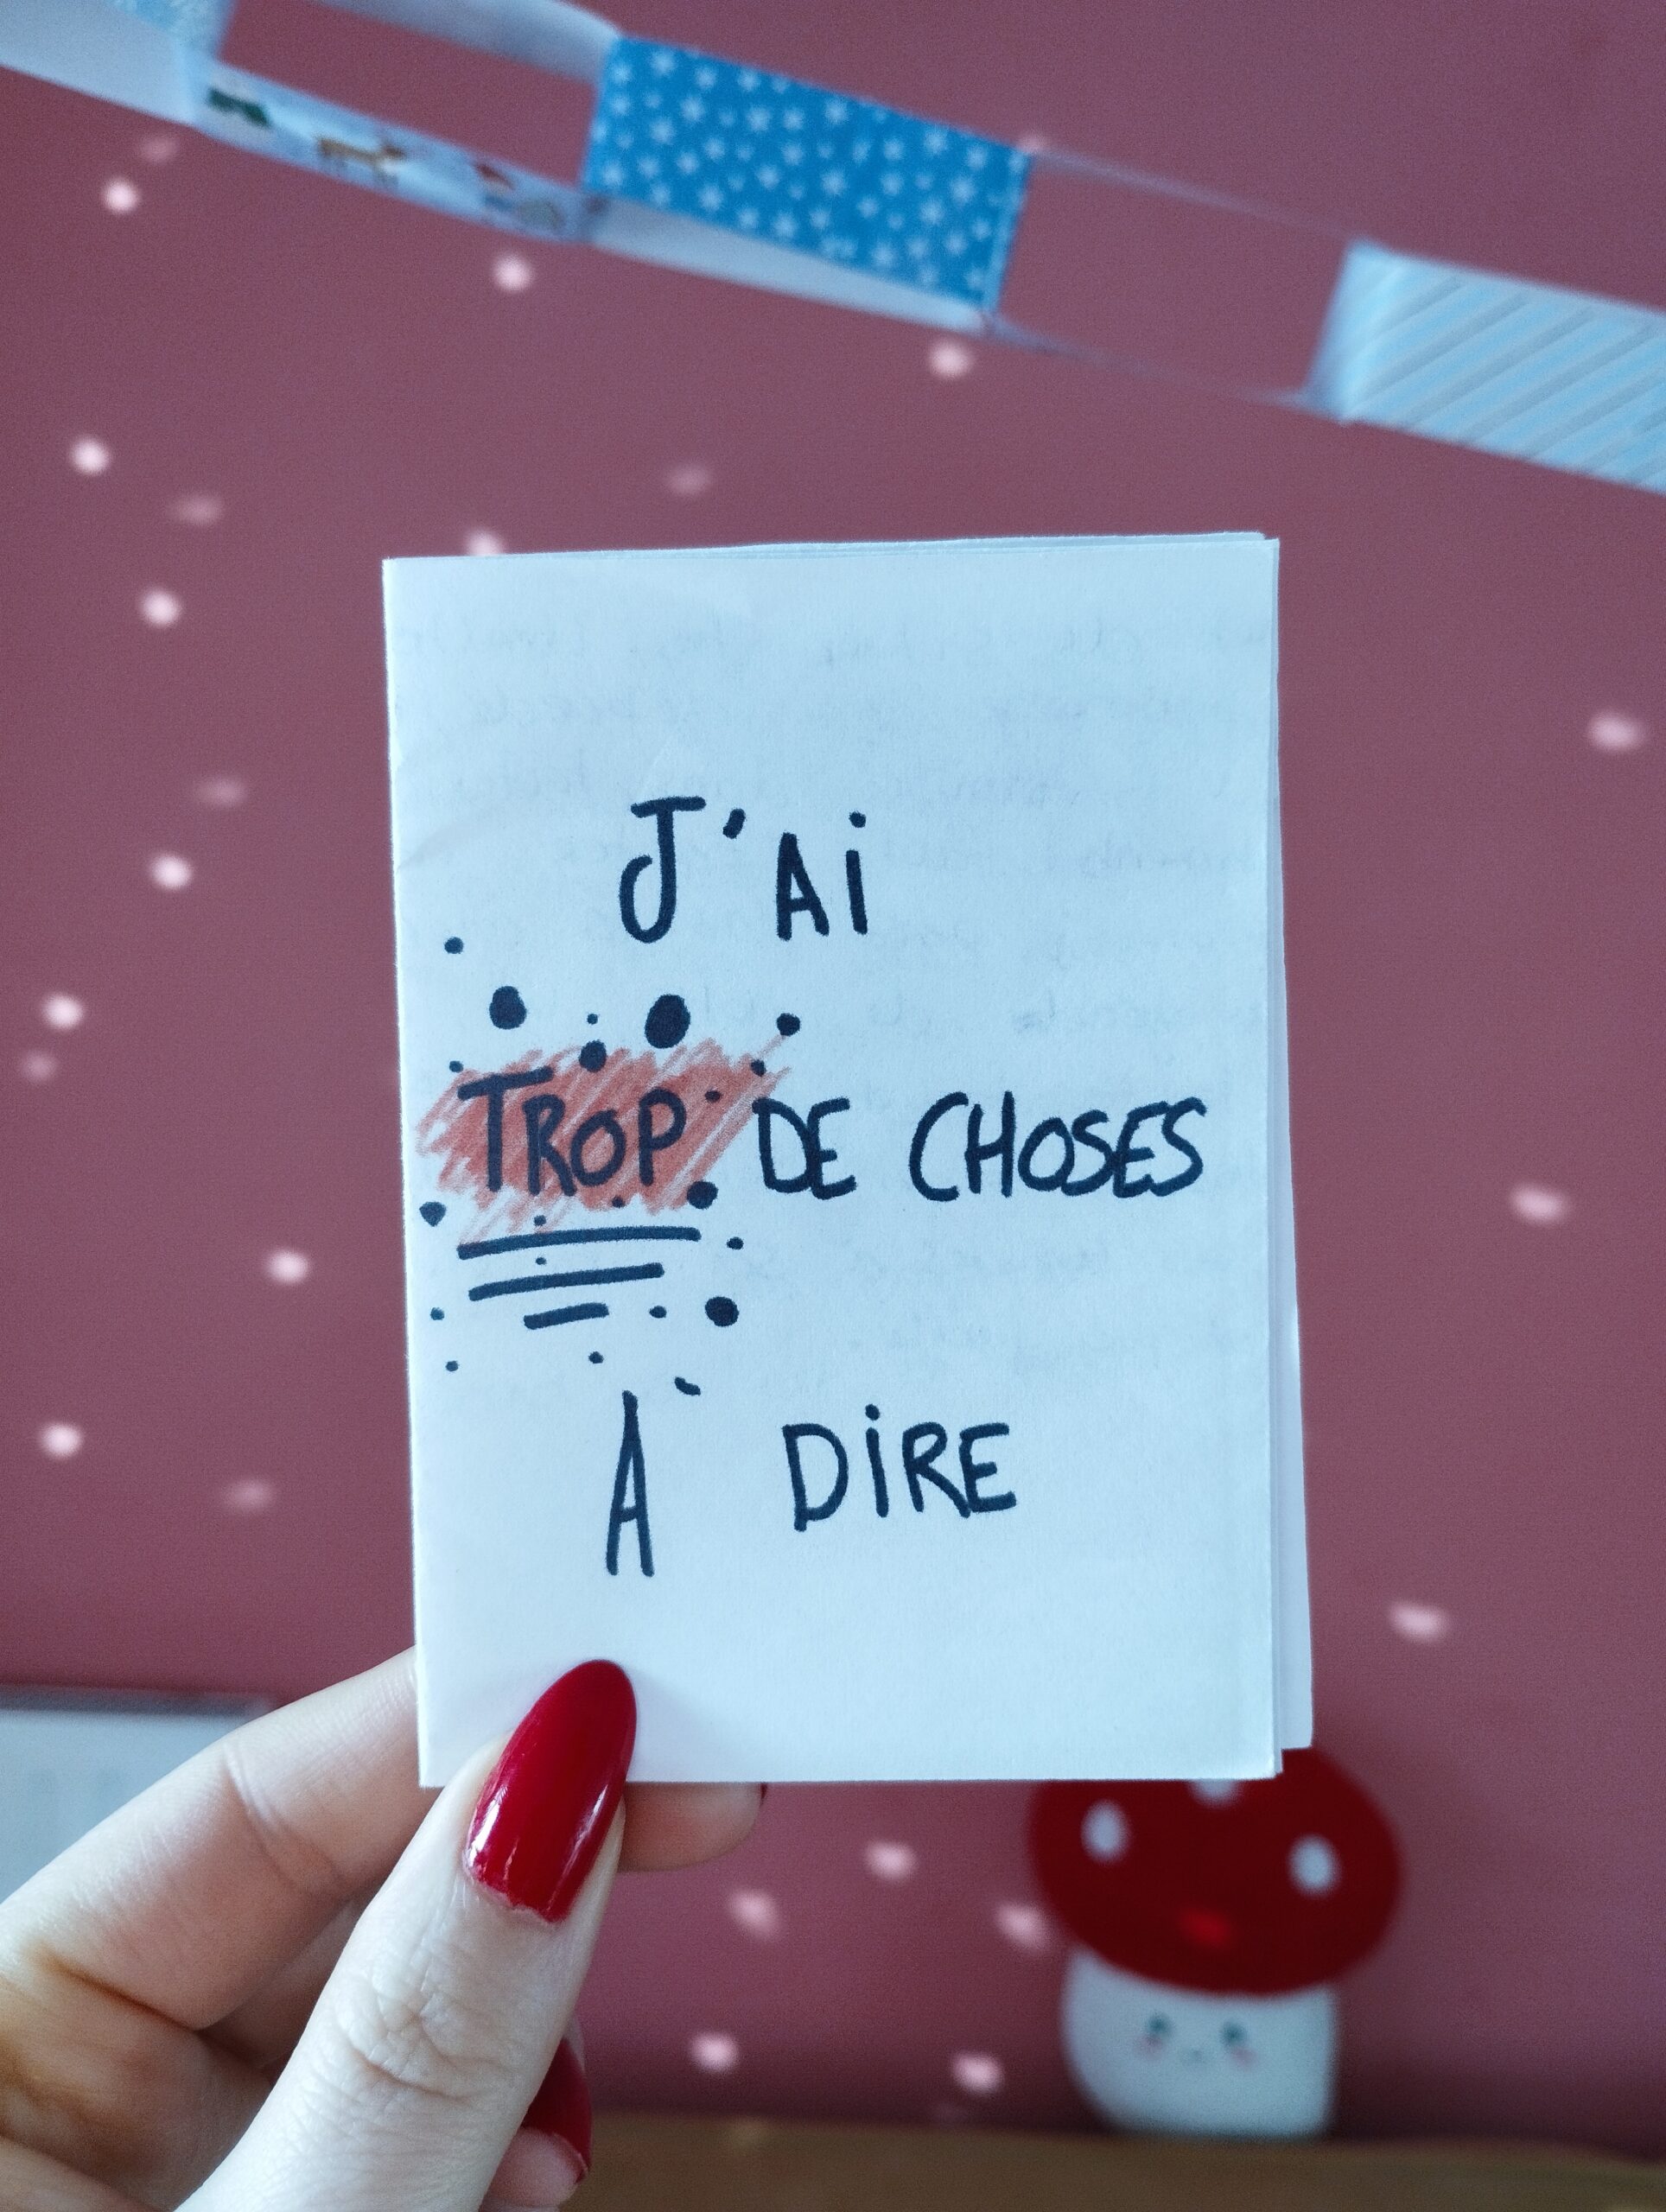 J'Ai
TROP DE CHOSES
À DiRE